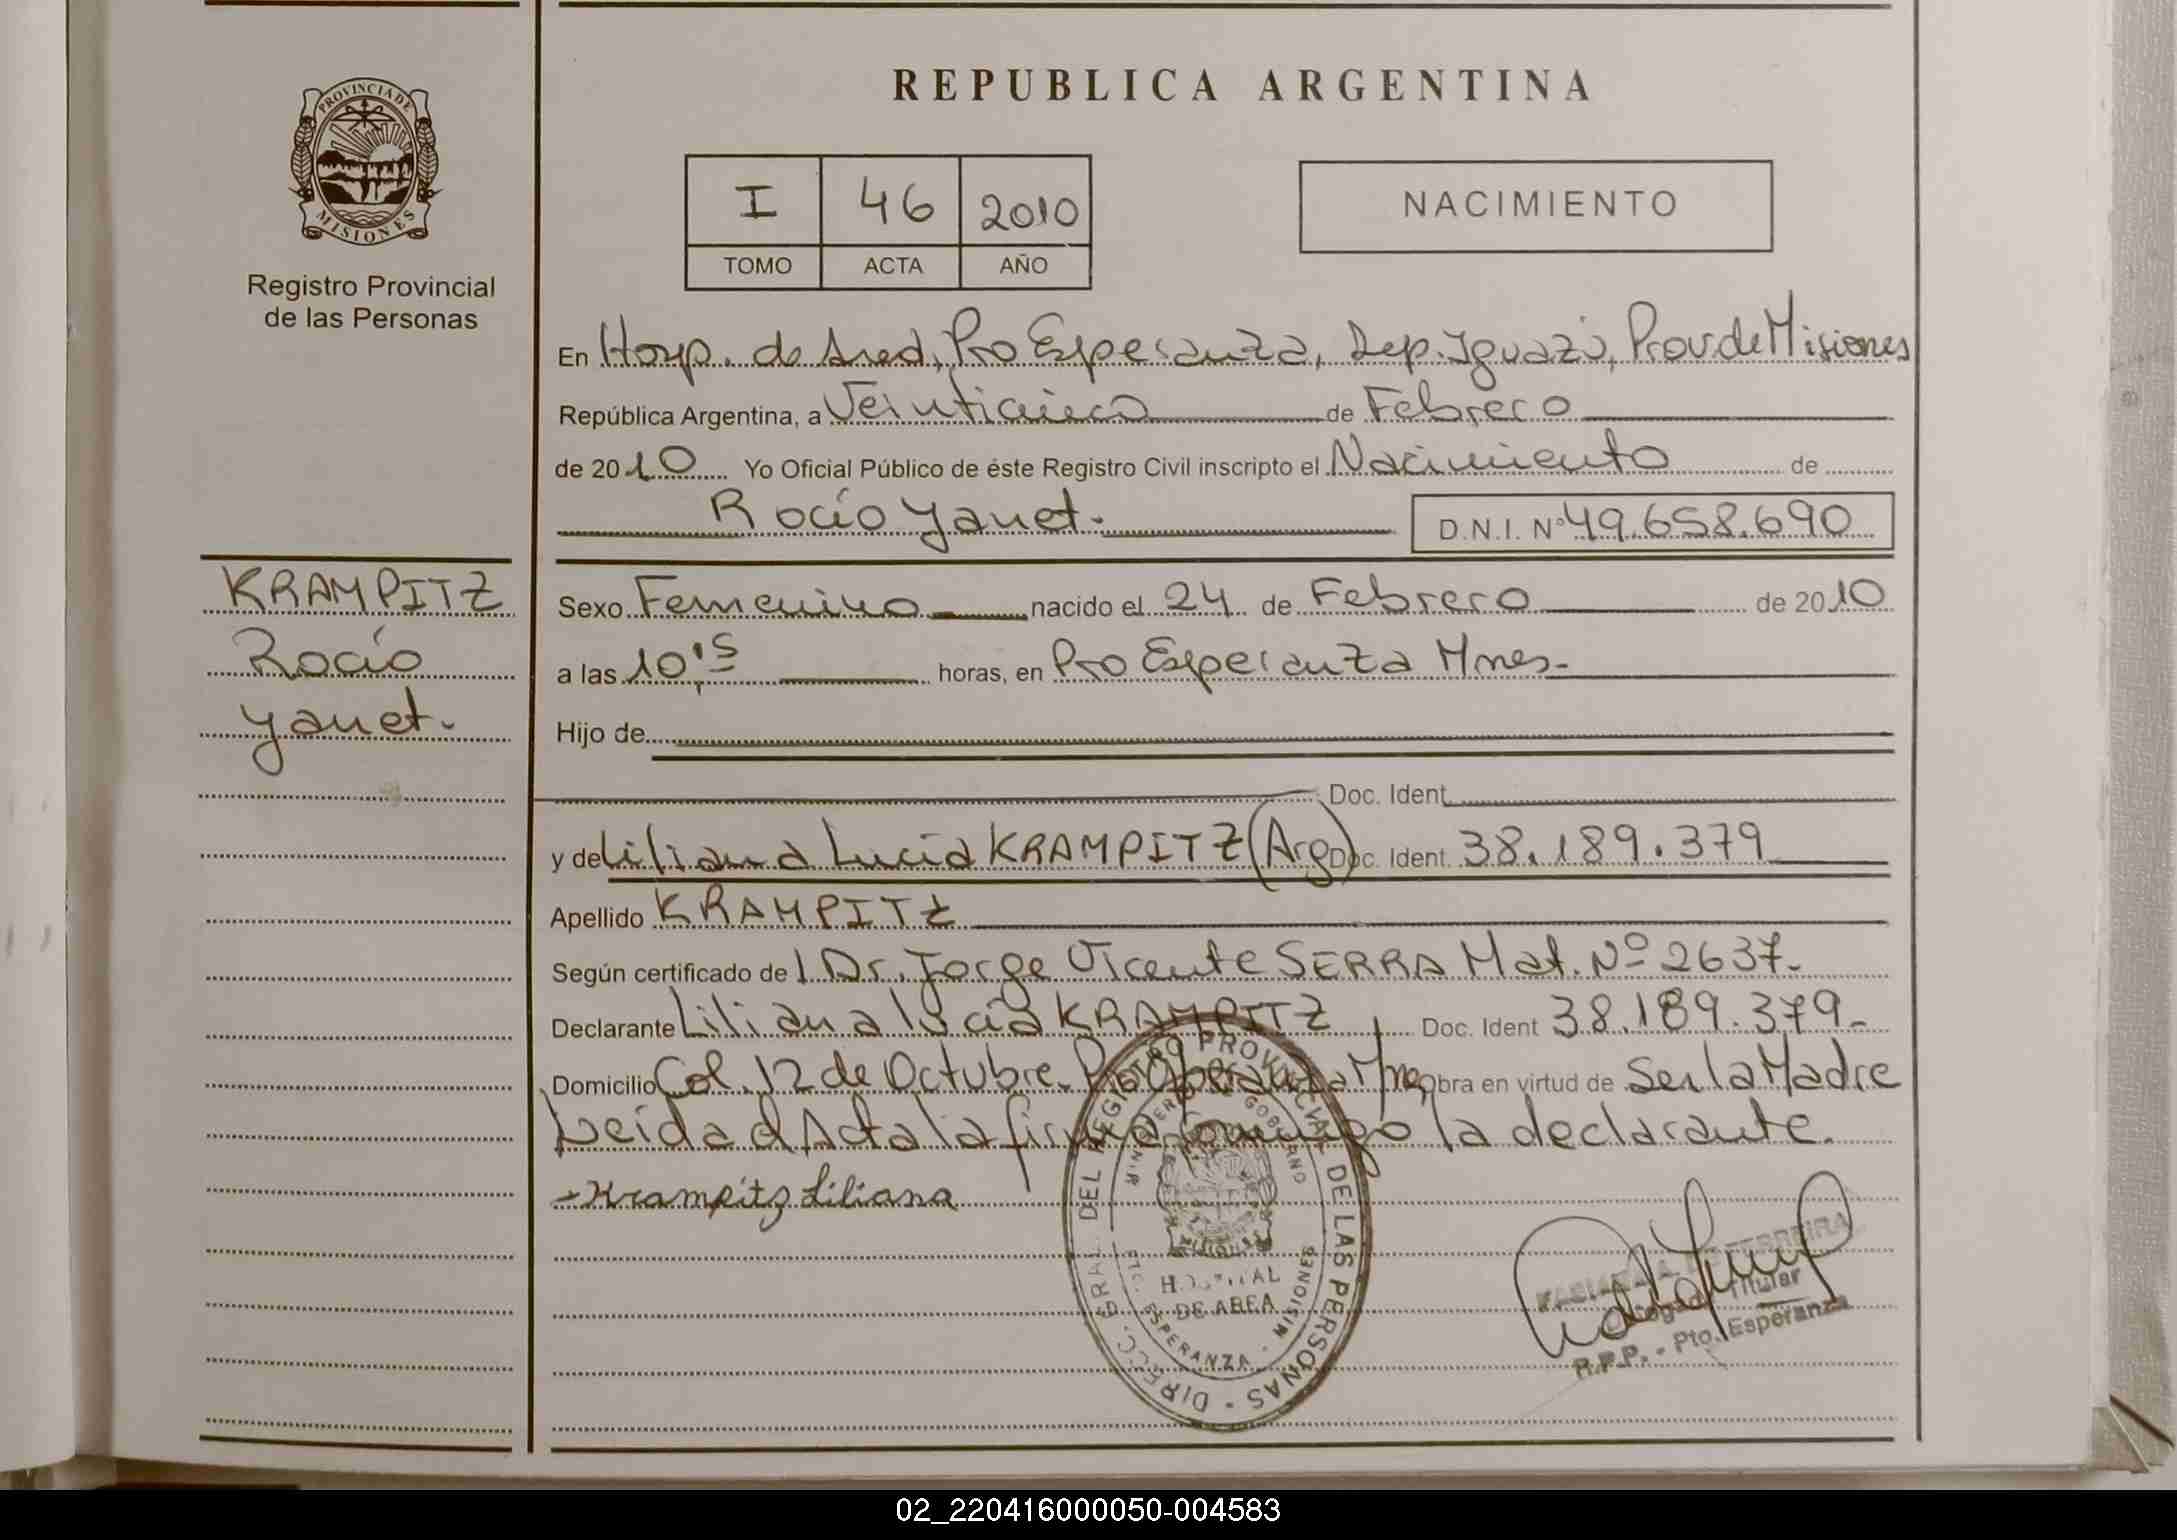 PROVINCIA DE
MISIONES
Registro Provincial
de las Personas
KRAMPITZ
Rocío
Yanet.
REPUBLICA ARGENTINA
I 46 2010
TOMO ACTA AÑO
NACIMIENTO
En Hosp. de Area, Pto Esperanza, Dep. Iguazú, Prov. de Misiones
República Argentina, a Veinticinco de Febrero
de 2010 Yo Oficial Público de éste Registro Civil inscripto el Nacimiento de
Rocío Yanet. D.N.I. Nº 49.658.690
Sexo Femenino nacido el 24 de Febrero de 2010
a las 10,15 horas, en Pto Esperanza Mnes.
Hijo de
Doc. Ident.
y de Liliana Lucia KRAMPITZ (Arg) Doc. Ident. 38.189.379
Apellido KRAMPITZ
Según certificado del Dr. Jorge Vicente SERRA Mat. Nº 2637.
Declarante Liliana Lucia KRAMPITZ Doc. Ident 38.189.379
Domicilio Col. 12 de Octubre. Pto Esperanza Mnes Obra en virtud de Ser la Madre
Leida el Acta la firma conmigo la declarante.
Krampitz Liliana
DIRECC. GRAL. DEL REGISTRO PROVINCIAL DE LAS PERSONAS
MINISTERIO DE GOBIERNO
MISIONES
HOSPITAL
DE AREA
PTO. ESPERANZA - MISIONES
FERREIRA
Titular
R.P.P. - Pto. Esperanza
02_220416000050-004583